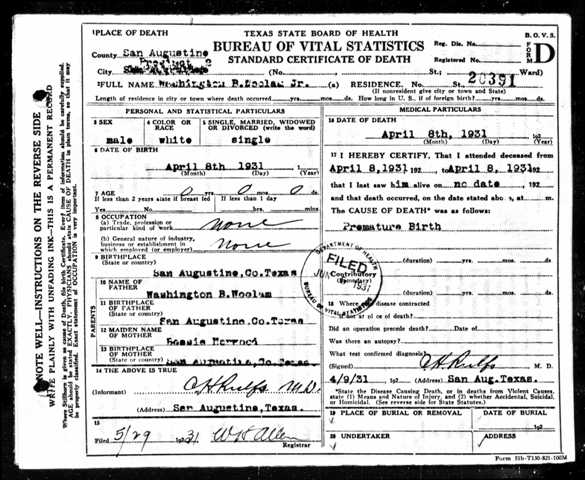 1 PLACE OF DEATH
TEXAS STATE BOARD OF HEALTH
BUREAU OF VITAL STATISTICS
STANDARD CERTIFICATE OF DEATH
B. O. V. S.
FORM D
Reg. Dis. No.
Registered No.
County San Augustine
Precinct 2
City
(No. St.; Ward)
20391
2 FULL NAME Washington B. Woolam Jr. (a) RESIDENCE. No. St.,
(If nonresident give city or town and State)
Length of residence in city or town where death occurred yrs. mos. ds. How long in U. S., if of foreign birth? yrs. mos. ds.
PERSONAL AND STATISTICAL PARTICULARS
3 SEX
male
4 COLOR OR RACE
white
5 SINGLE, MARRIED, WIDOWED OR DIVORCED (write the word)
single
6 DATE OF BIRTH
April 8th, 1931
(Month) (Day) (Year)
7 AGE 0 yrs. 0 mos. 0 ds.
If less than 2 years state if breast fed
If less than 1 day
Yes No hrs. min.
8 OCCUPATION
(a) Trade, profession or particular kind of work none
(b) General nature of industry, business or establishment in which employed (or employer) None
9 BIRTHPLACE
(State or country)
San Augustine, Co. Texas
PARENTS
10 NAME OF FATHER
Washington B. Woolam
11 BIRTHPLACE OF FATHER
(State or country)
San Augustine, Co. Texas
12 MAIDEN NAME OF MOTHER
13 BIRTHPLACE OF MOTHER
(State or country)
San Augustine, Co. Texas
14 THE ABOVE IS TRUE
(Informant) C H Rulfs M.D.
(Address) San Augustine, Texas.
15
Filed 5/29 1931 W H Allen
Registrar
MEDICAL PARTICULARS
16 DATE OF DEATH
April 8th, 1931 192
(Month) (Day) (Year)
17 I HEREBY CERTIFY, That I attended deceased from
April 8, 1931 192, to April 8, 1931 192
that I last saw him alive on no date, 192
and that death occurred, on the date stated above, at m.
The CAUSE OF DEATH* was as follows:
Premature Birth
(duration) yrs. mos. ds.
Contributory
(Secondary)
(duration) yrs. mos. ds.
DEPARTMENT OF HEALTH
FILED
1931
BUREAU OF VITAL STATISTICS
18 Where was disease contracted
if not at place of death?
Did an operation precede death? Date of
Was there an autopsy?
What test confirmed diagnosis?
(Signed) C H Rulfs M. D.
4/9/31, 192 (Address) San Aug. Texas.
*State the Disease Causing Death, or in deaths from Violent Causes, state (1) Means and Nature of Injury, and (2) whether Accidental, Suicidal, or Homicidal. (See reverse side for State Statutes.)
19 PLACE OF BURIAL OR REMOVAL
DATE OF BURIAL
192
20 UNDERTAKER
ADDRESS
NOTE WELL—INSTRUCTIONS ON THE REVERSE SIDE
WRITE PLAINLY WITH UNFADING INK—THIS IS A PERMANENT RECORD